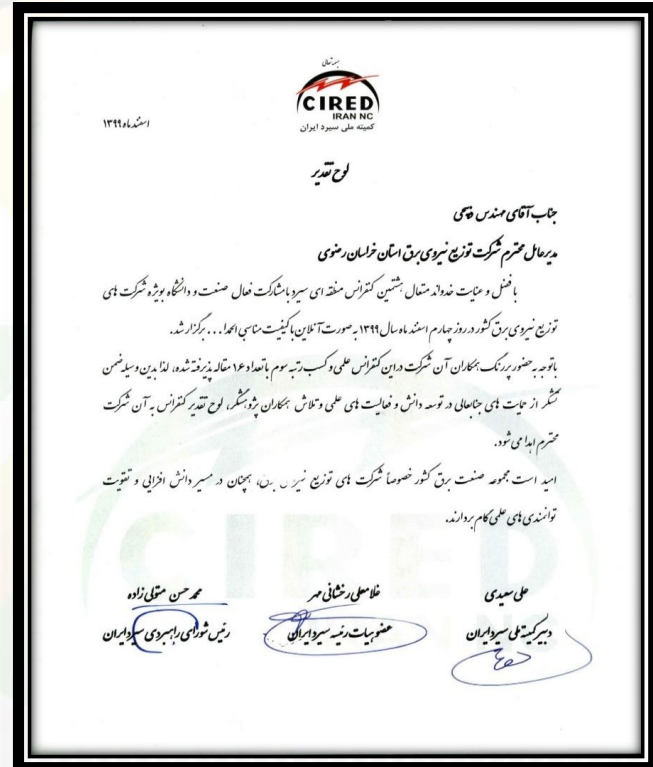 بسمه تعالی
CIRED
IRAN NC
کمیته ملی سیرد ایران
اسفند ماه ۱۳۹۹
لوح تقدیر
جناب آقای مهندس ذبیحی
مدیرعامل محترم شرکت توزیع نیروی برق استان خراسان رضوی
با فضل و عنایت خداوند متعال هشتمین کنفرانس منطقه ای سیرد با مشارکت فعال صنعت و دانشگاه بویژه شرکت های
توزیع نیروی برق کشور در روز چهارم اسفند ماه سال ۱۳۹۹ به صورت آنلاین با کیفیت مناسبی الحمدا... برگزار شد.
باتوجه به حضور پررنگ همکاران آن شرکت در این کنفرانس علمی و کسب رتبه سوم با تعداد ۱۶ مقاله پذیرفته شده، لذا بدین وسیله ضمن
تشکر از حمایت های جنابعالی در توسعه دانش و فعالیت های علمی و تلاش همکاران پژوهشگر، لوح تقدیر کنفرانس به آن شرکت
محترم اهدا می شود.
امید است مجموعه صنعت برق کشور خصوصاً شرکت های توزیع نیروی برق، همچنان در مسیر دانش افزایی و تقویت
توانمندی های علمی گام بردارند.
علی سعیدی
دبیر کمیته ملی سیرد ایران
غلامعلی رخشانی مهر
عضو هیات رئیسه سیرد ایران
محمد حسن متولی زاده
رئیس شورای راهبردی سیرد ایران
CIRED
IRAN NC